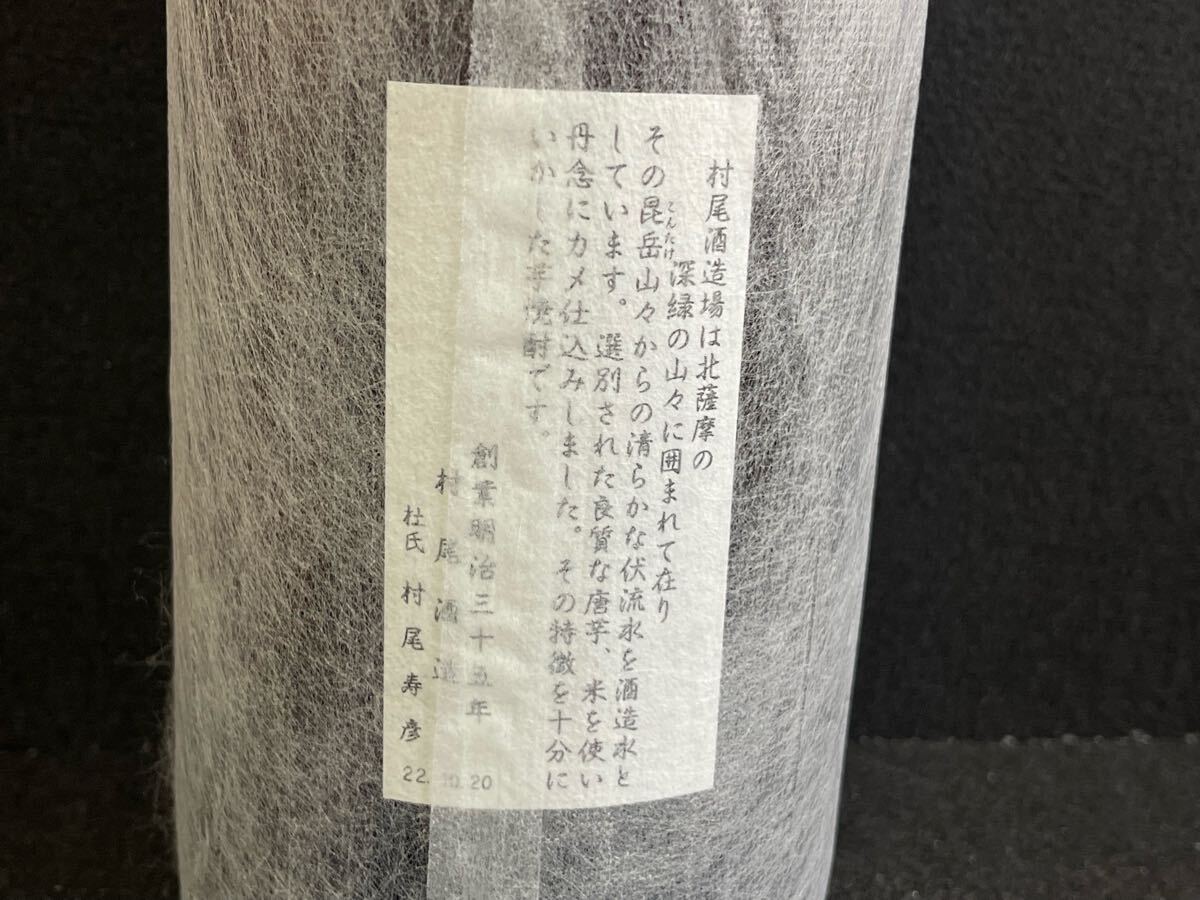 村尾酒造場は北薩摩の
深緑の山々に囲まれて在り
その昆岳山々からの清らかな伏流水を酒造水と
こんたけ
しています。選別された良質な唐芋、米を使い
丹念にカメ仕込みしました。その特徴を十分に
いかした芋焼酎です。
創業明治三十五年
村尾酒造
杜氏 村尾寿彦
22.10.20